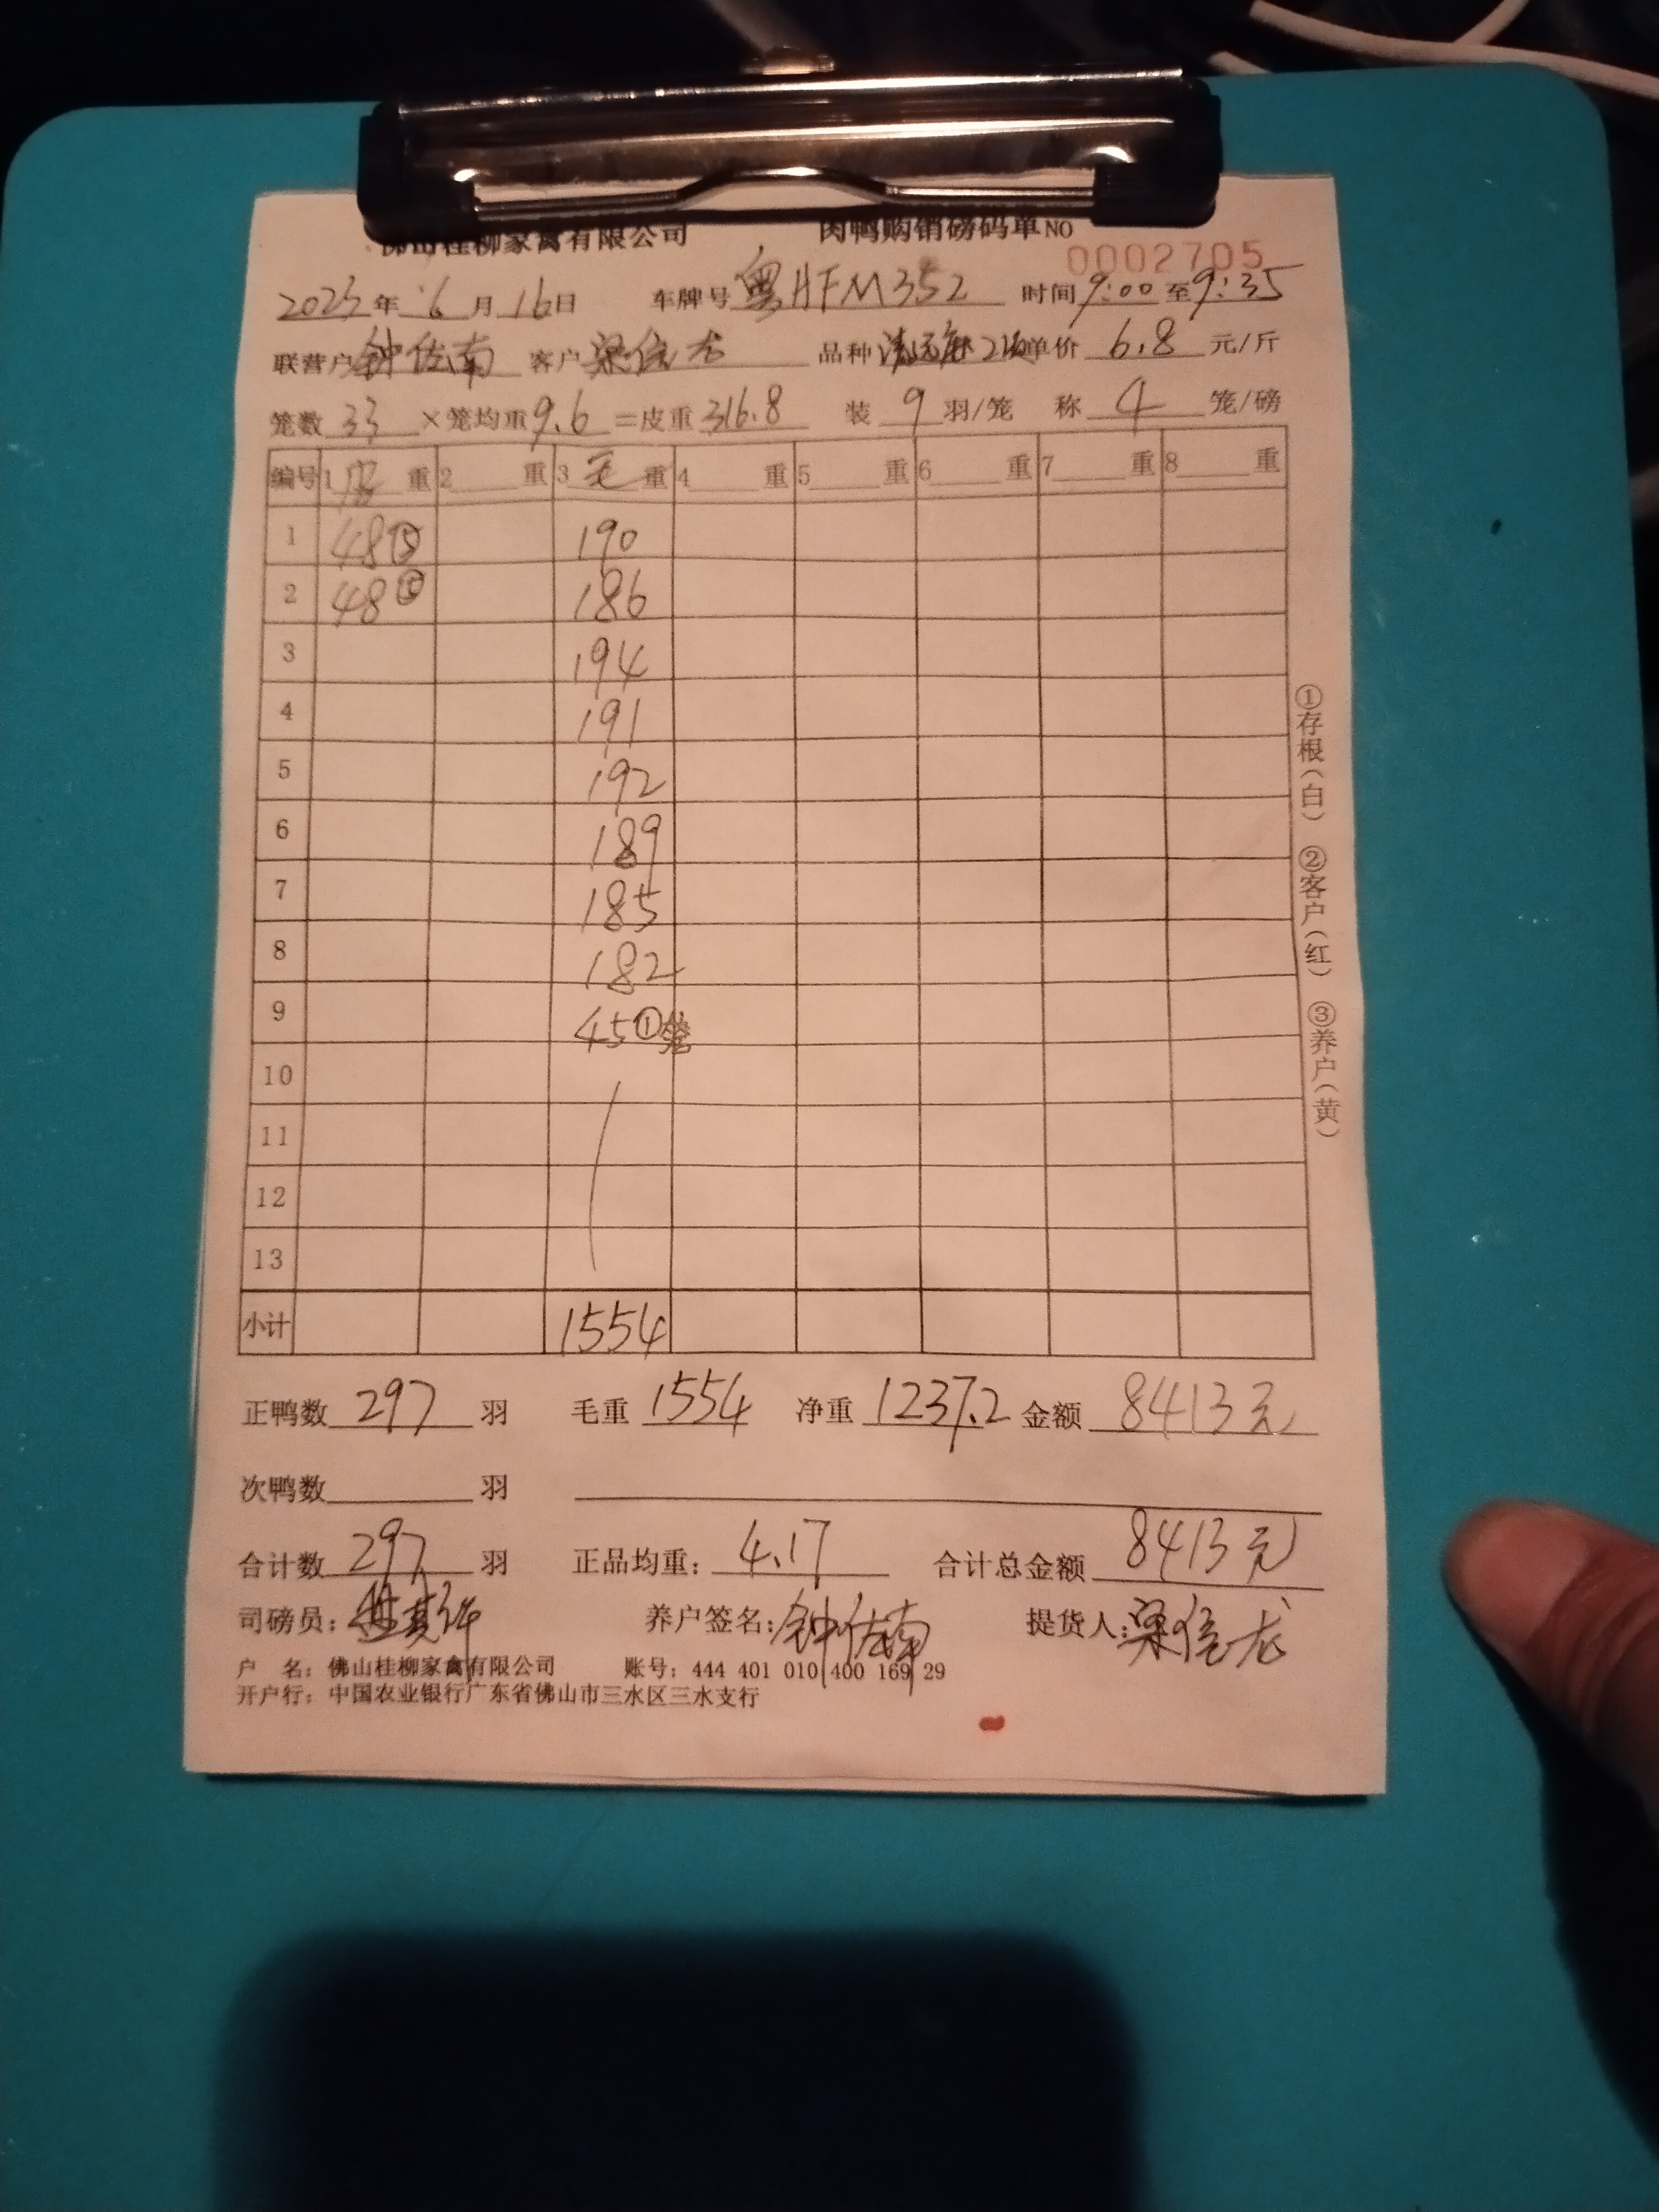 佛山桂柳家禽有限公司 肉鸭购销磅码单NO 0002705
2023年 6月 16日 车牌号 粤HFM352 时间 9:00 至 9:35
联营户 钟佐南 客户 梁信龙 品种 单价 6.8 元/斤
笼数 33 ×笼均重 9.6 =皮重 316.8 装 9 羽/笼 称 4 笼/磅
编号 1 皮 重 2 重 3 毛 重 4 重 5 重 6 重 7 重 8 重
1 48⑤ 190
2 48⑤ 186
3 194
4 191
5 192
6 189
7 185
8 182
9 45①笼
10
11
12
13
小计 1554
正鸭数 297 羽 毛重 1554 净重 1237.2 金额 8413元
次鸭数 羽
合计数 297 羽 正品均重: 4.17 合计总金额 8413元
司磅员: 养户签名: 钟佐南 提货人: 梁信龙
户 名: 佛山桂柳家禽有限公司 账号: 444 401 010 400 169 29
开户行: 中国农业银行广东省佛山市三水区三水支行
①存根(白) ②客户(红) ③养户(黄)